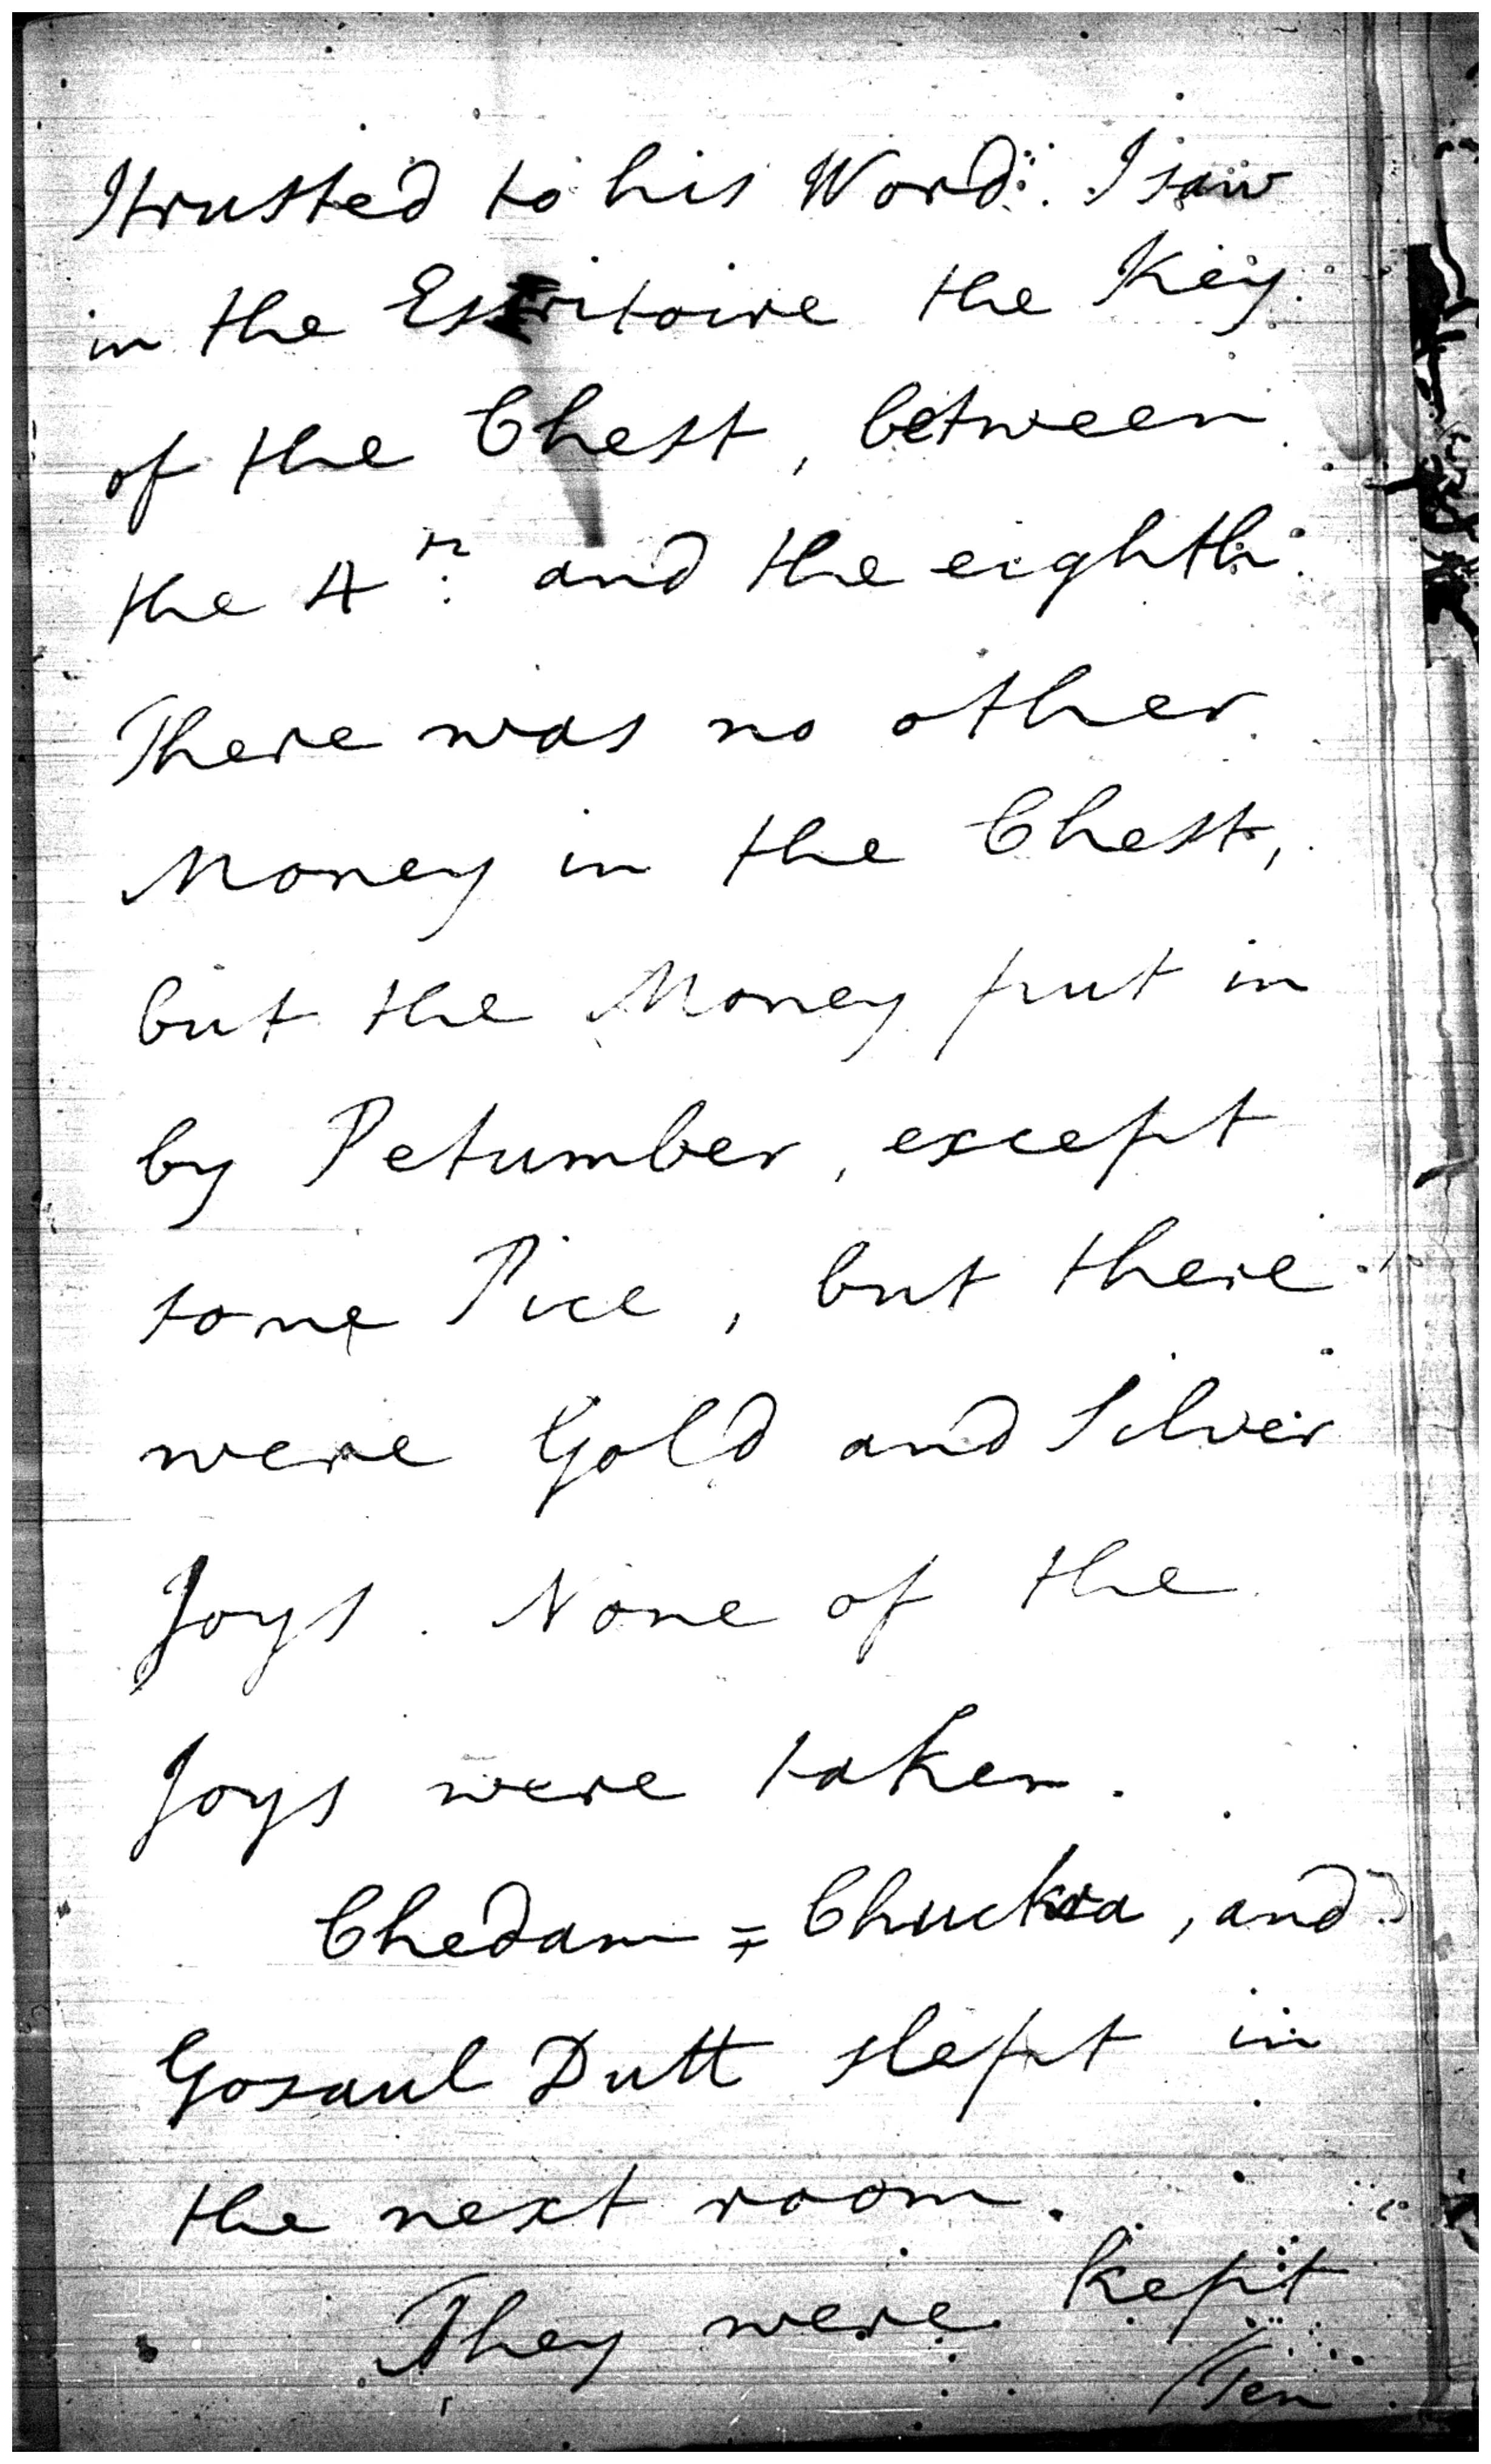 I trusted to his Word. I saw
in the Escritoire the Key
of the Chest, between
the 4th. and the eighth.
There was no other
Money in the Chest,
but the Money put in
by Petumber, except
some Pice, but there
were Gold and Silver
Joys. None of the
Joys were taken.
Chedam = Chuckra, and
Gosaul Dutt slept in
the next room.
They were kept
/Ten